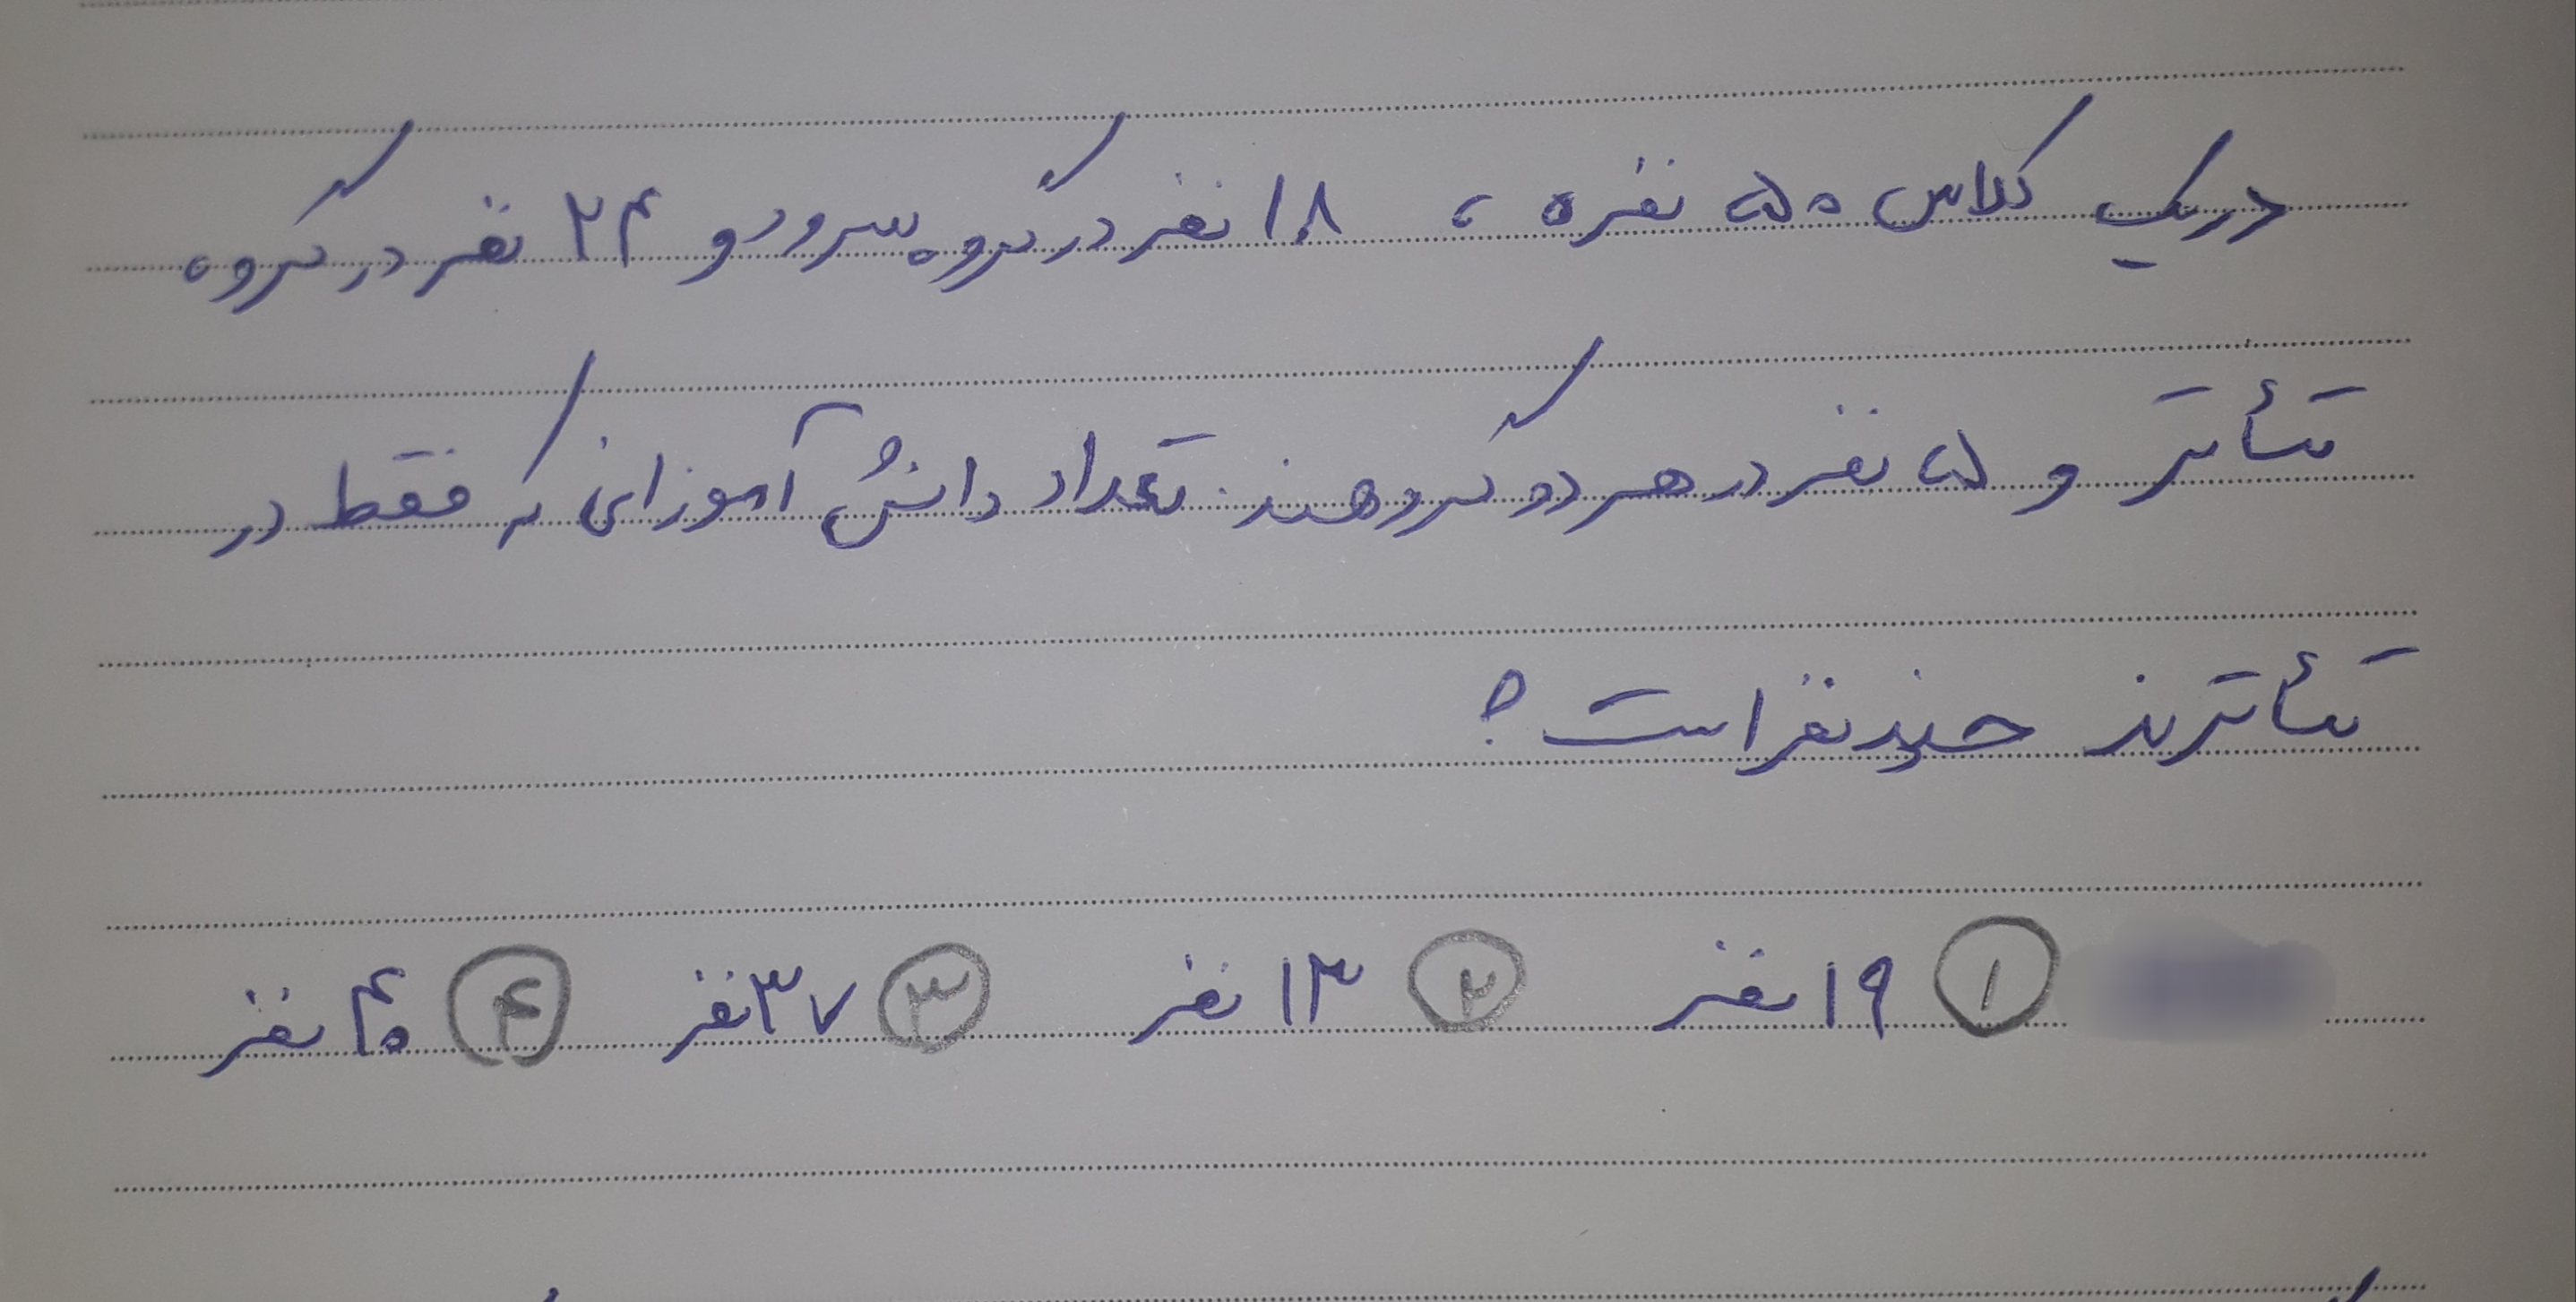 در یک کلاس ۵۰ نفره ، ۱۸ نفر در گروه سرود و ۲۴ نفر در گروه
تئأتر و ۵ نفر در هر دو گروهند. تعداد دانش آموزانی که فقط در
تئأترند چند نفر است ؟
۱ ۱۹ نفر ۲ ۱۳ نفر ۳ ۳۷ نفر ۴ ۴۰ نفر